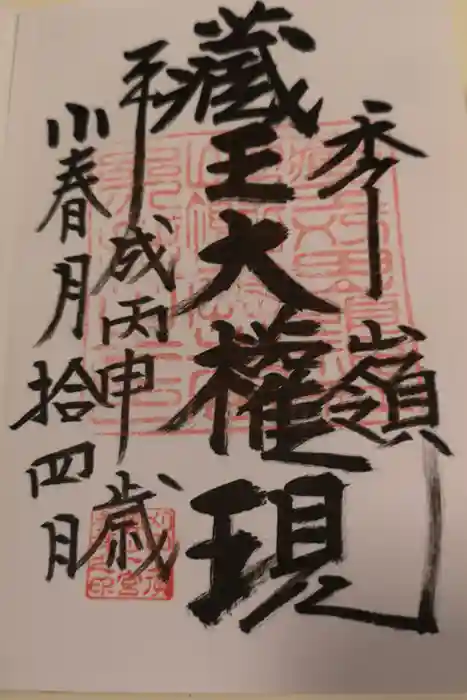 秀嶺
藏王大權現
平成丙申歳
小春月拾四日